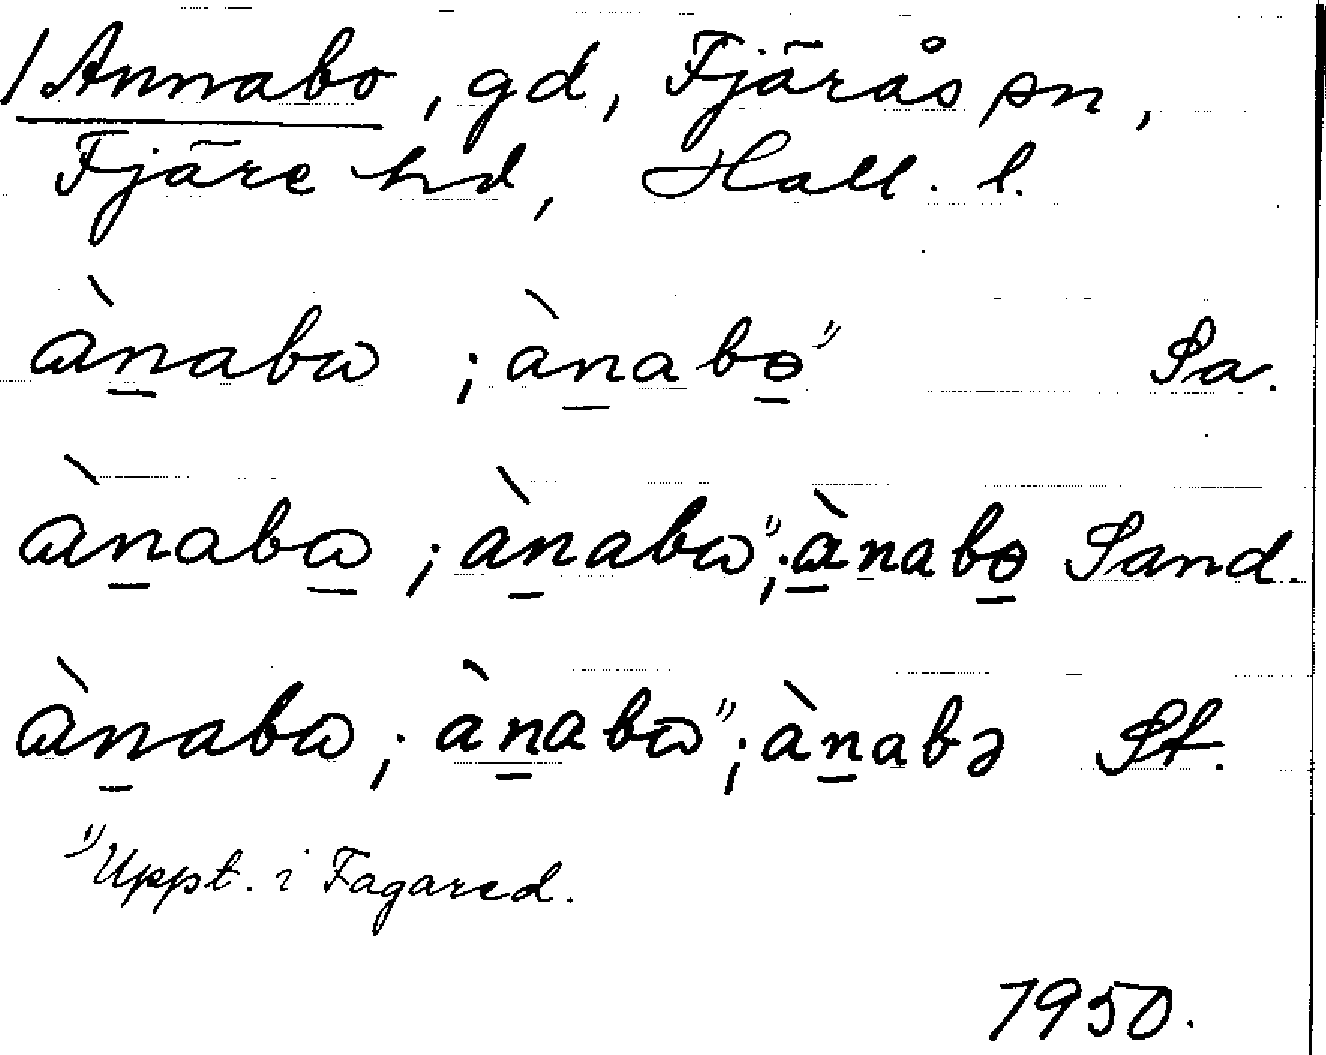 /Annabo, gd, Fjärås sn,
Fjäre hd, Hall. l.
ὰn̲abω ; ὰn̲abo̲¹⁾ Sa.
ὰn̲abω̲ ; ὰn̲abω¹⁾; ὰ̲n̲abo̲ Sand.
ὰn̲abω ; àn̲abω¹⁾; àn̲abɔ St.
¹⁾Uppt. i Fagared.
1950.